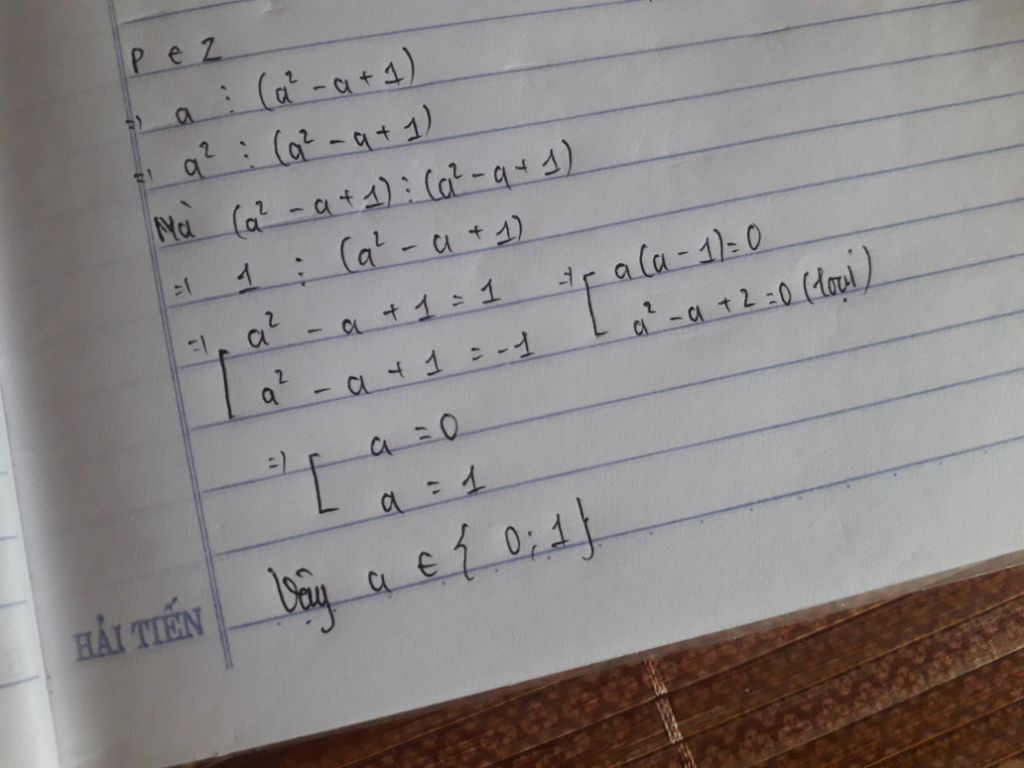 P ∈ Z
=> a ⋮ (a² - a + 1)
=> a² ⋮ (a² - a + 1)
Mà (a² - a + 1) ⋮ (a² - a + 1)
=> 1 ⋮ (a² - a + 1)
=> [ a² - a + 1 = 1 => [ a(a - 1) = 0
a² - a + 1 = -1 a² - a + 2 = 0 (loại)
=> [ a = 0
a = 1
Vậy a ∈ { 0; 1 }
HẢI TIẾN